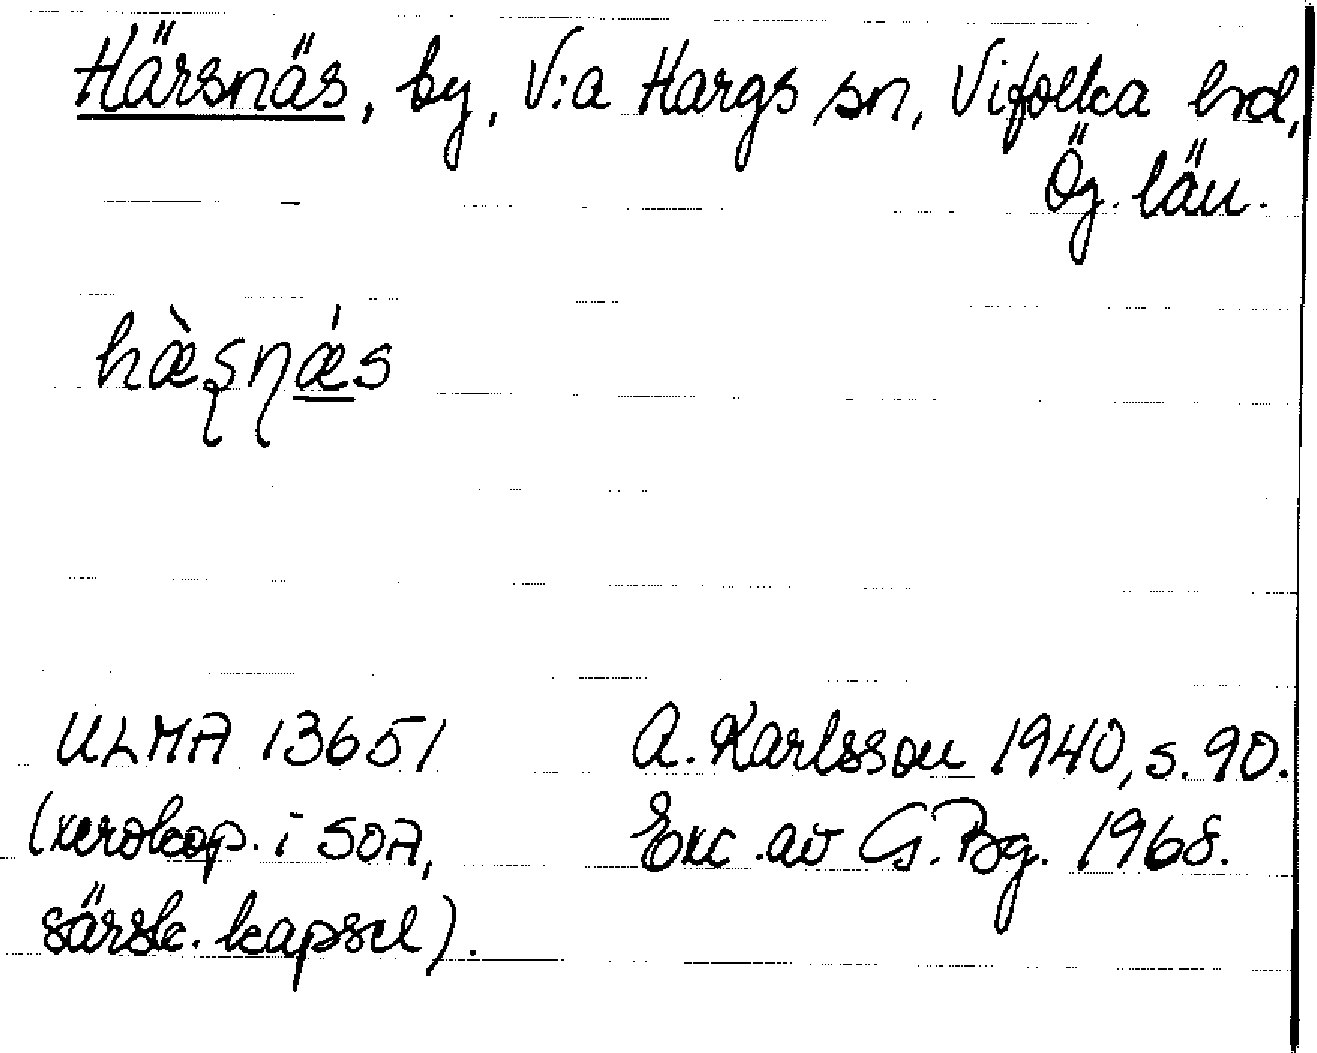 Härsnäs, by, V:a Hargs sn, Vifolka hd,
Ög. län.
hæ̀ʂɳǽs
ULMA 13651
(xerokop. i SOA,
särsk. kapsel).
A. Karlsson 1940, s. 90.
Exc. av G. Bg. 1968.